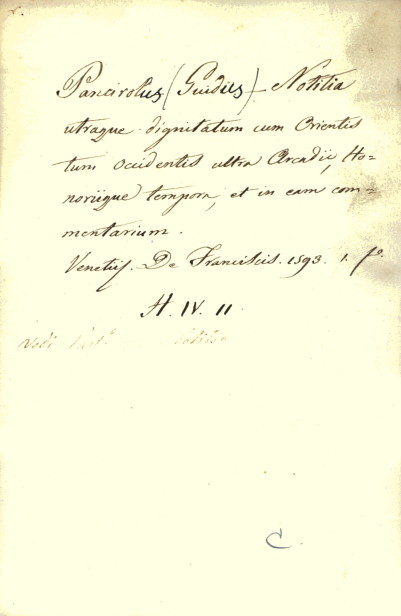 Pancirolus (Guidus) - Notitia
utraque dignitatum cum Orientis
tum Occidentis ultra Arcadii, Ho=
noriique tempora, et in eam com=
mentarium.
Venetiis. De Franciscis. 1593. 1. fº.
H. IV. 11
Vedi
C.